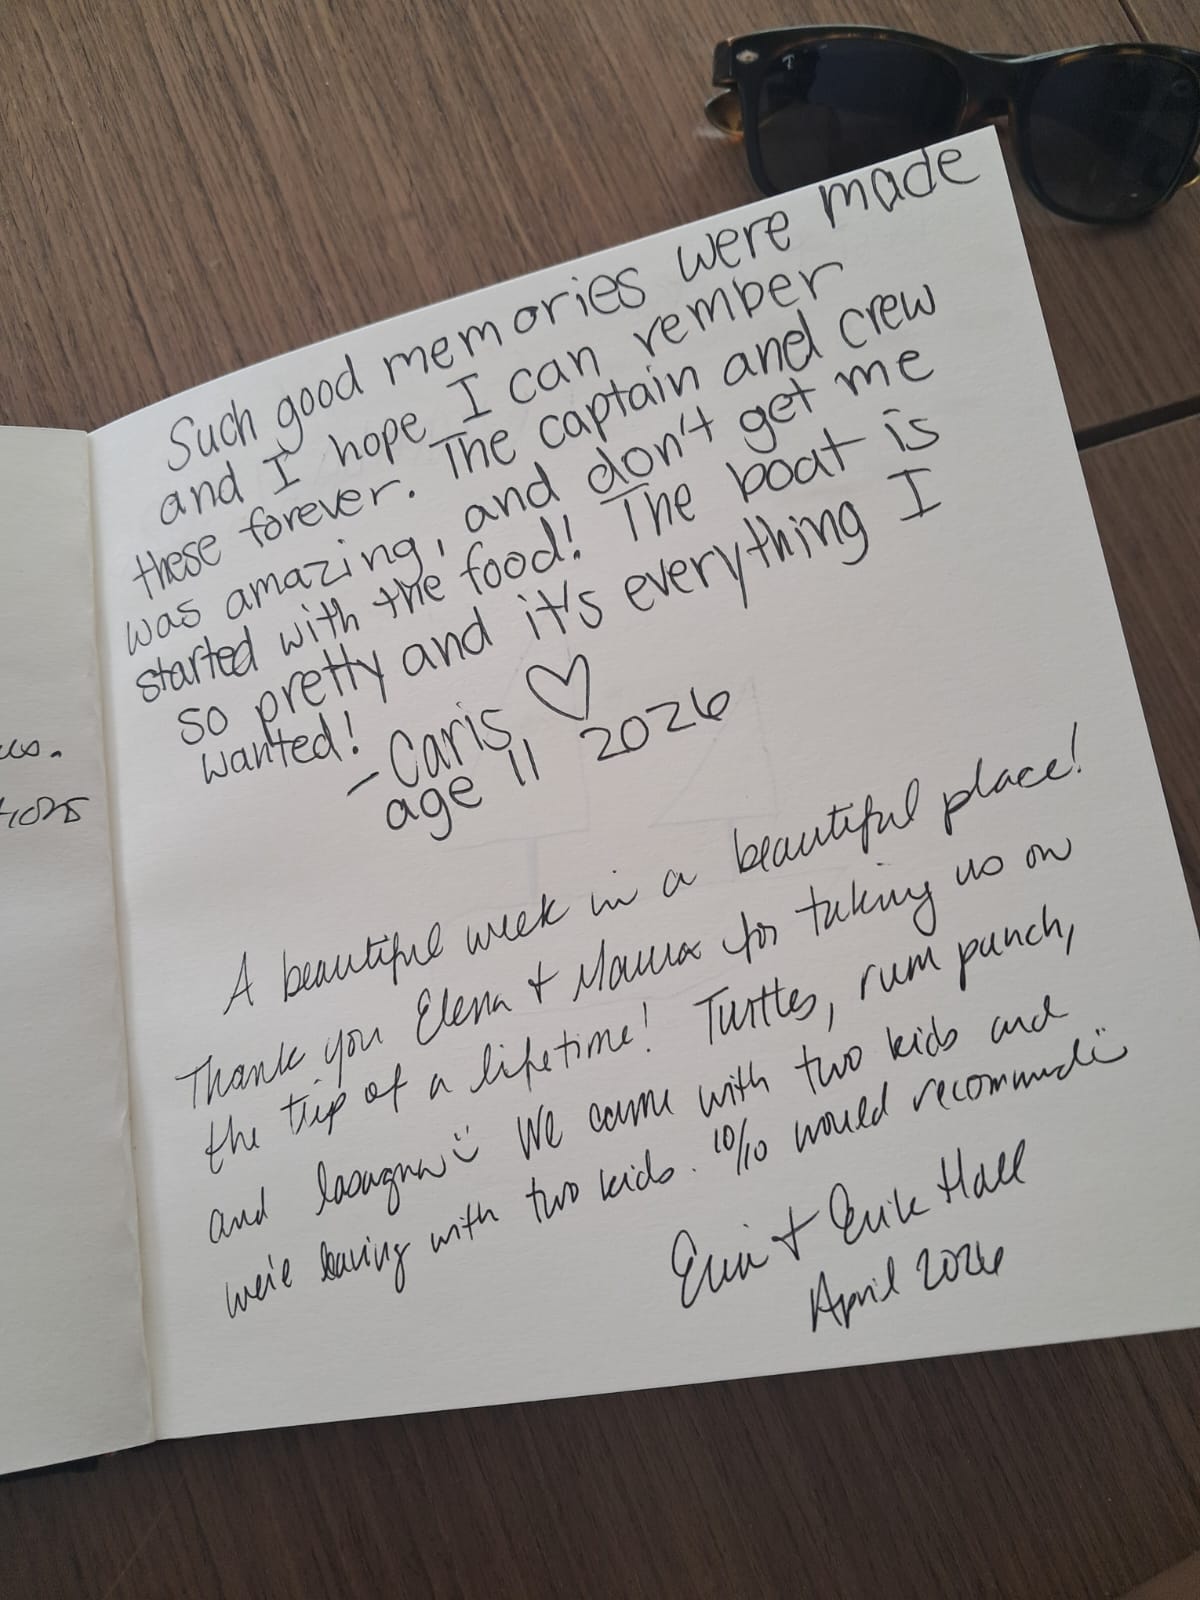 Such good memories were made
and I hope I can rember
these forever. The captain and crew
was amazing, and don't get me
started with the food! The boat is
so pretty and it's everything I
wanted!
- Caris ♡
age 11 2026
A beautiful week in a beautiful place!
Thank you Elena + for taking us on
the trip of a lifetime! Turtles, rum punch,
and lasagna :) We came with two kids and
we're leaving with two kids. 10/10 would recommend :)
Erin + Erik Hall
April 2026